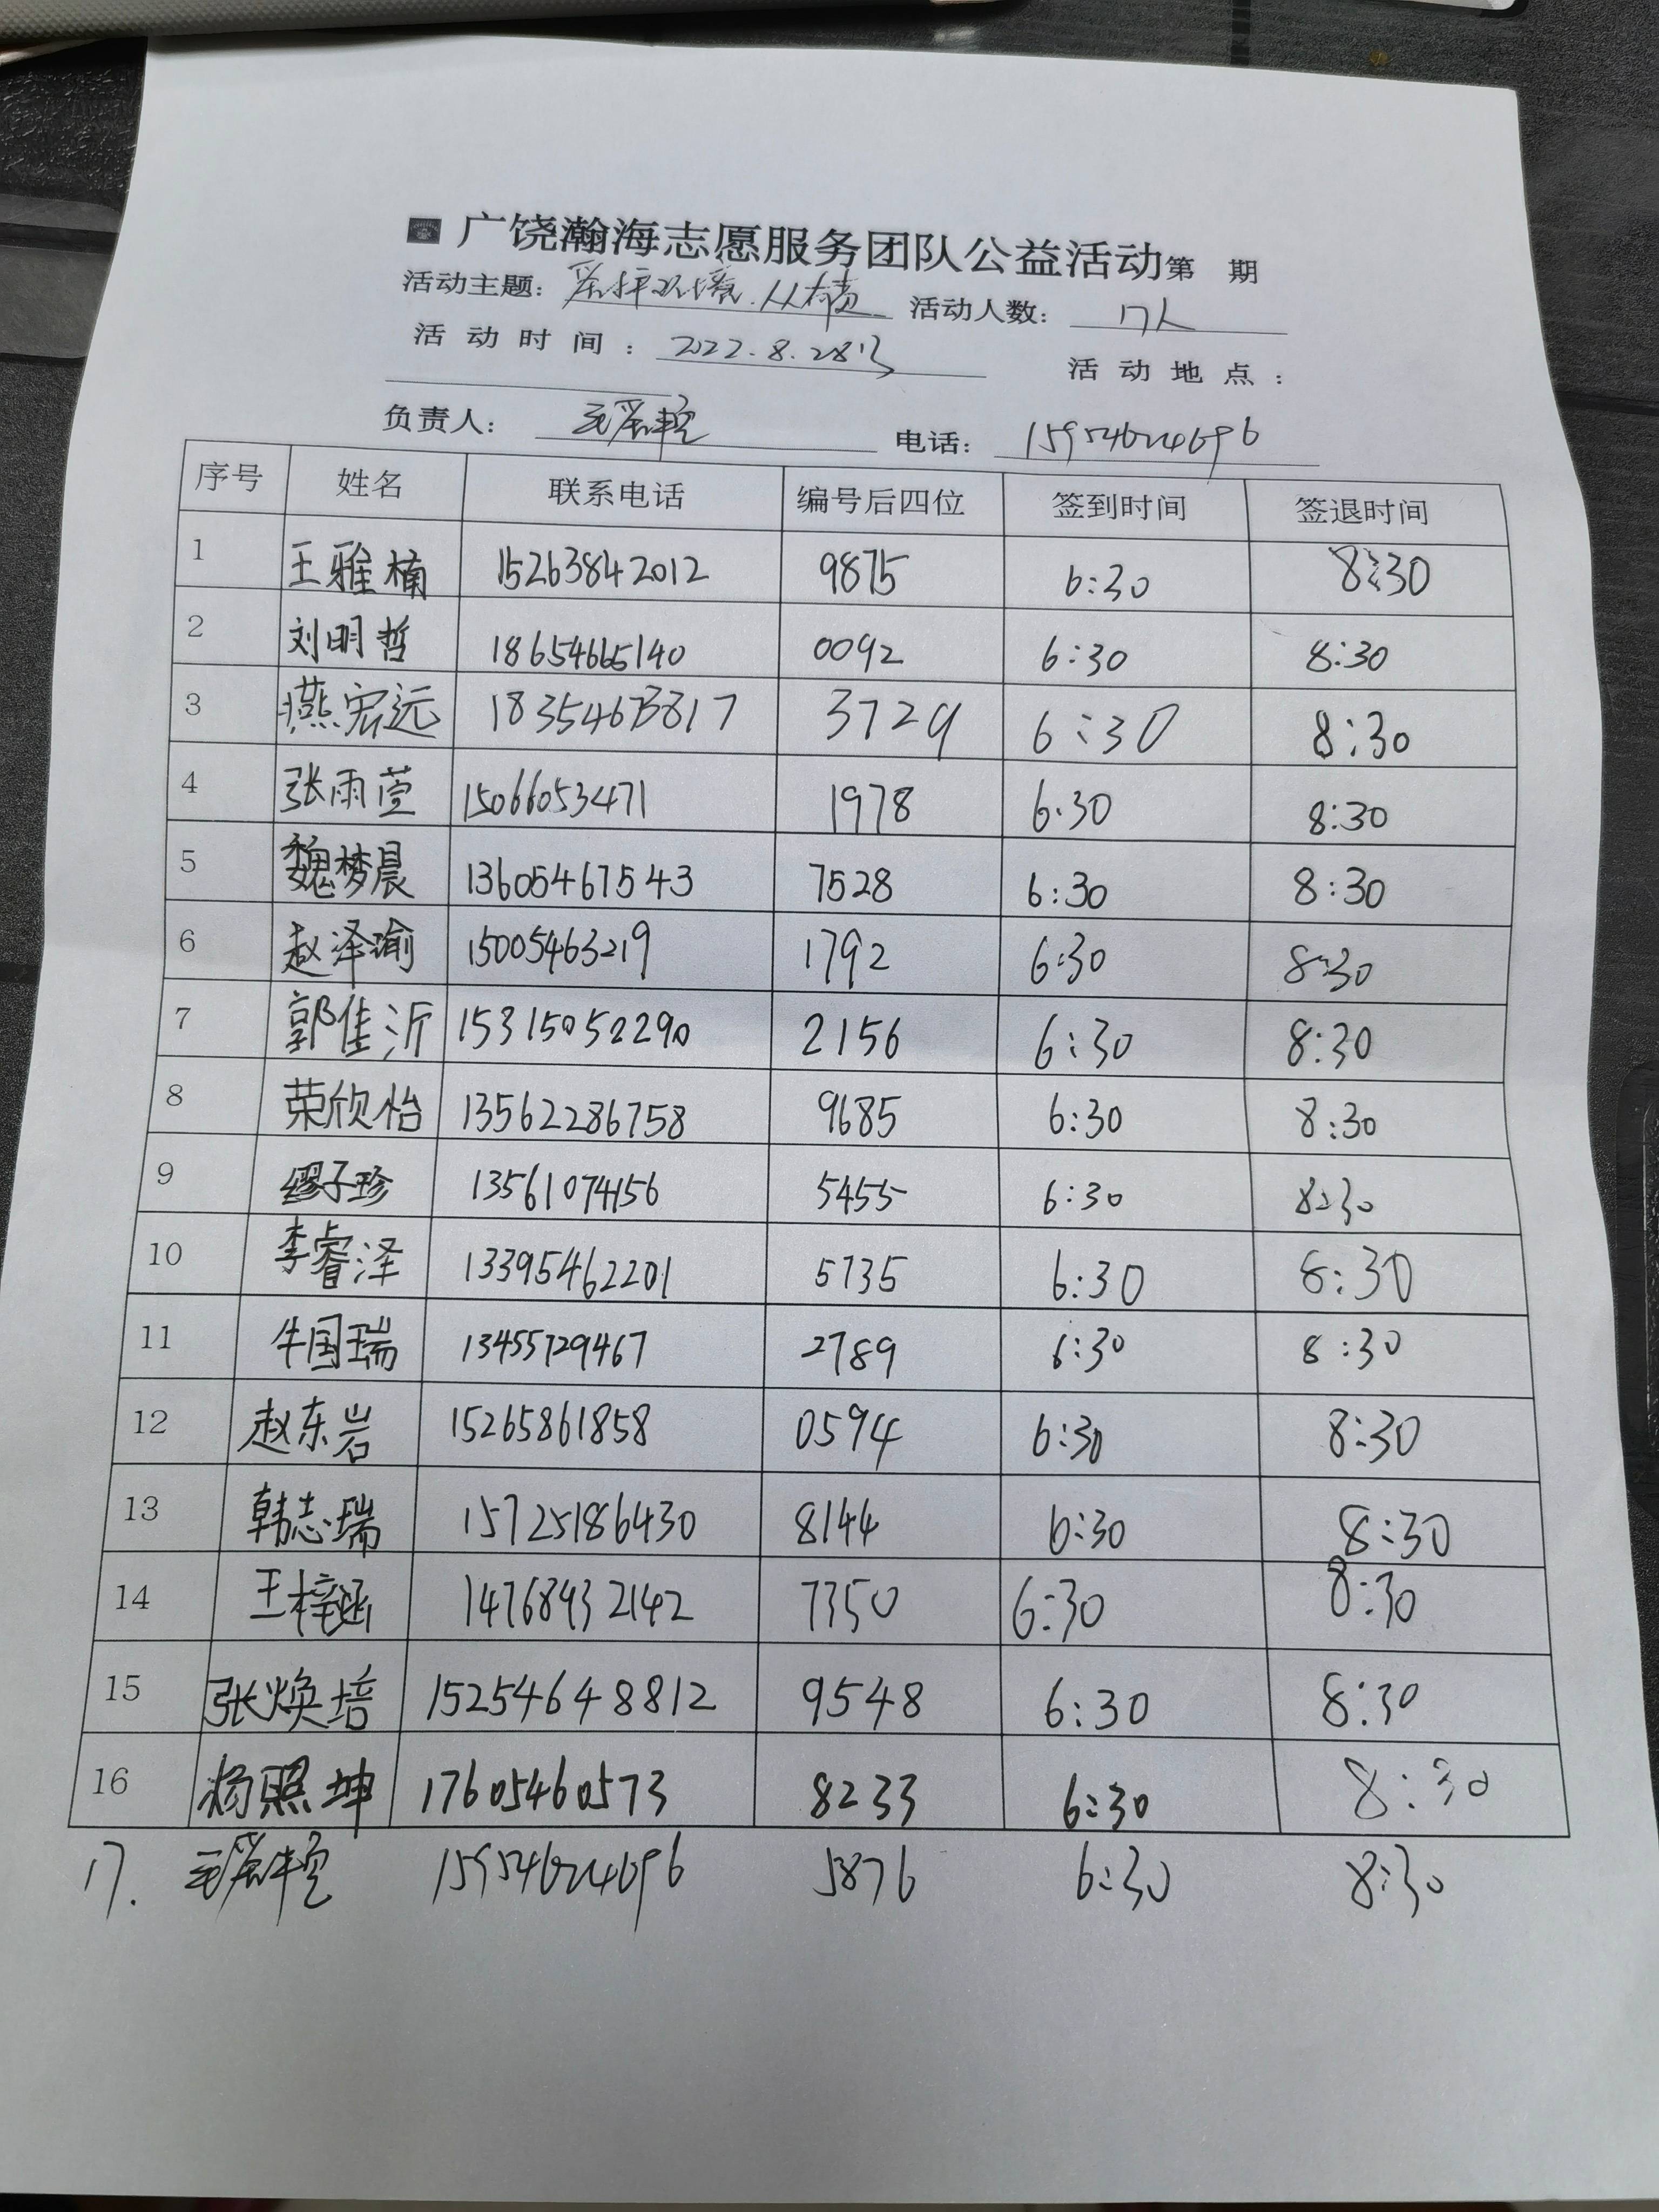 广饶瀚海志愿服务团队公益活动第 期
活动主题：爱护环境.从 活动人数：17人
活动时间：2022.8.28日 活动地点：
负责人： 电话：15954624696
序号 姓名 联系电话 编号后四位 签到时间 签退时间
1 王雅楠 15263842012 9875 6:30 8:30
2 刘明哲 18654665140 0092 6:30 8:30
3 燕宏远 3729 6:30 8:30
4 张雨萱 15066053471 1978 6:30 8:30
5 魏梦晨 13605467543 7528 6:30 8:30
6 赵泽瑜 15005463219 1792 6:30 8:30
7 郭佳沂 15315052290 2156 6:30 8:30
8 荣欣怡 13562286758 9685 6:30 8:30
9 缪子珍 13561074156 5455 6:30 8:30
10 李睿泽 13395462201 5735 6:30 8:30
11 牛国瑞 13455729467 2789 6:30 8:30
12 赵东岩 15265861858 0594 6:30 8:30
13 韩志瑞 15725186430 8144 6:30 8:30
14 王梓涵 14768932142 7350 6:30 8:30
15 张焕培 15254648812 9548 6:30 8:30
16 杨照坤 17605460573 8233 6:30 8:30
17. 15954624696 5876 6:30 8:30